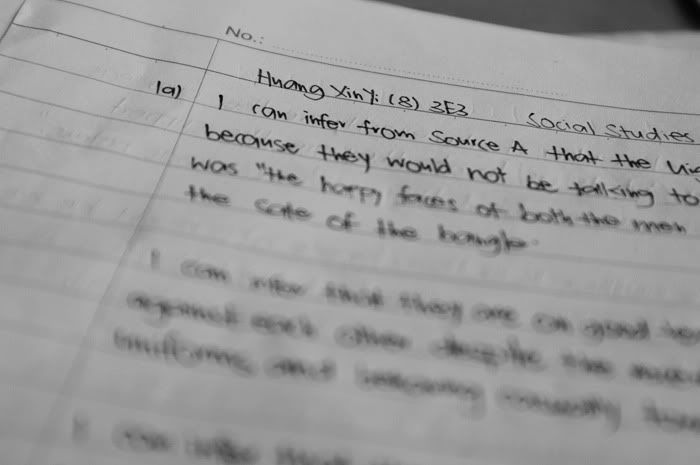 No.:
Huang XinYi (8) 3E3 Social Studies
1a) I can infer from Source A that the
because they would not be talking to
was "the happy faces of both the men
the sale of the bangle.
I can infer that they are on good
against each other despite the
uniforms and
I can infer that